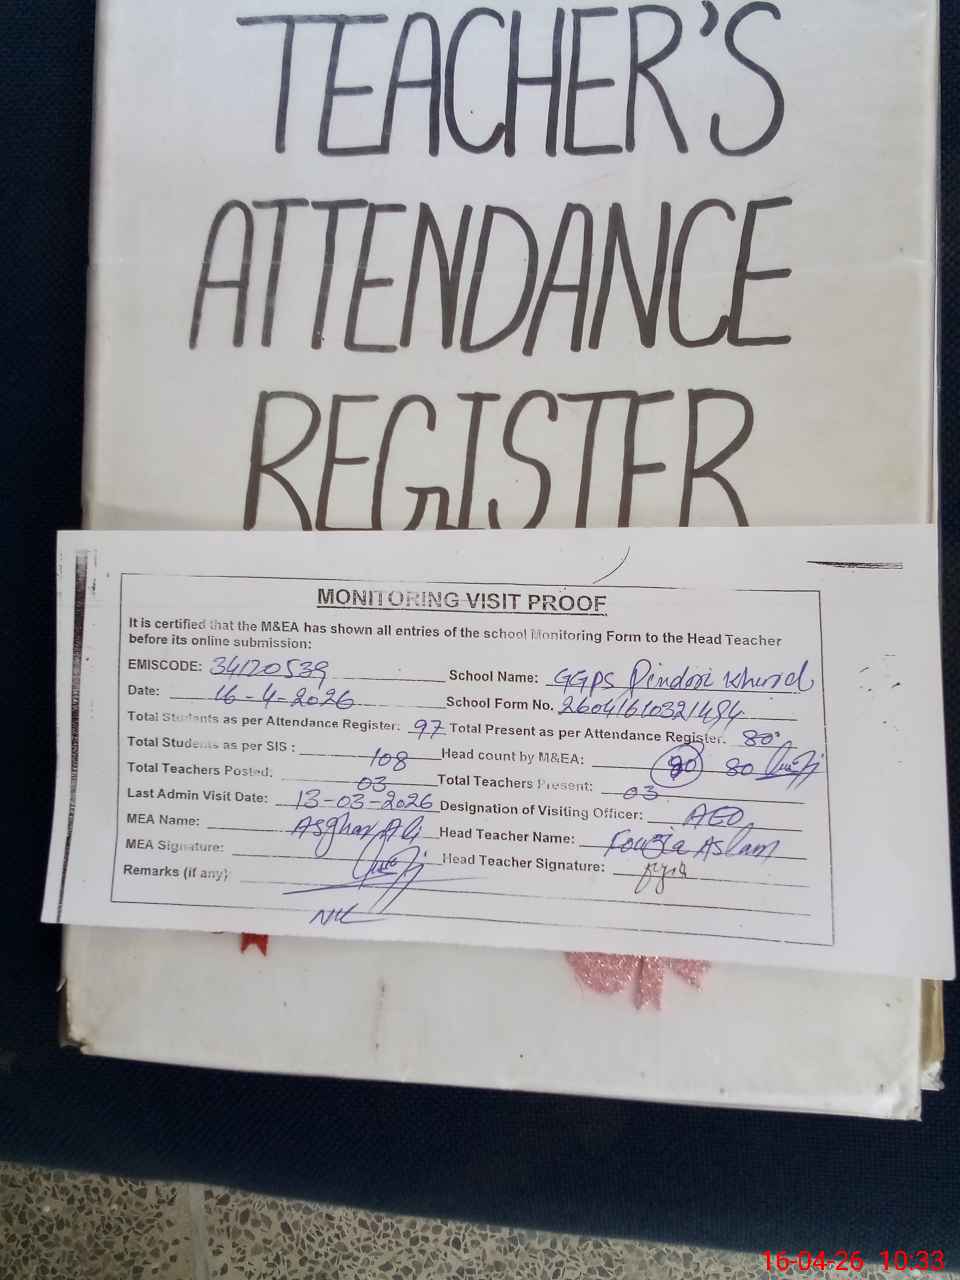 TEACHER'S
ATTENDANCE
REGISTER
MONITORING VISIT PROOF
It is certified that the M&EA has shown all entries of the school Monitoring Form to the Head Teacher
before its online submission:
EMISCODE: 34120539 School Name: GGPS Pindori Khurd
Date: 16-4-2026 School Form No. 26041610321494
Total Students as per Attendance Register: 97 Total Present as per Attendance Register. 80
Total Students as per SIS : 108 Head count by M&EA: 80 80
Total Teachers Posted: 03 Total Teachers Present: 03
Last Admin Visit Date: 13-03-2026 Designation of Visiting Officer: AEO
MEA Name: Asghar Ali Head Teacher Name: Fouzia Aslam
MEA Signature: Head Teacher Signature:
Remarks (if any)
Nil
16-04-26 10:33